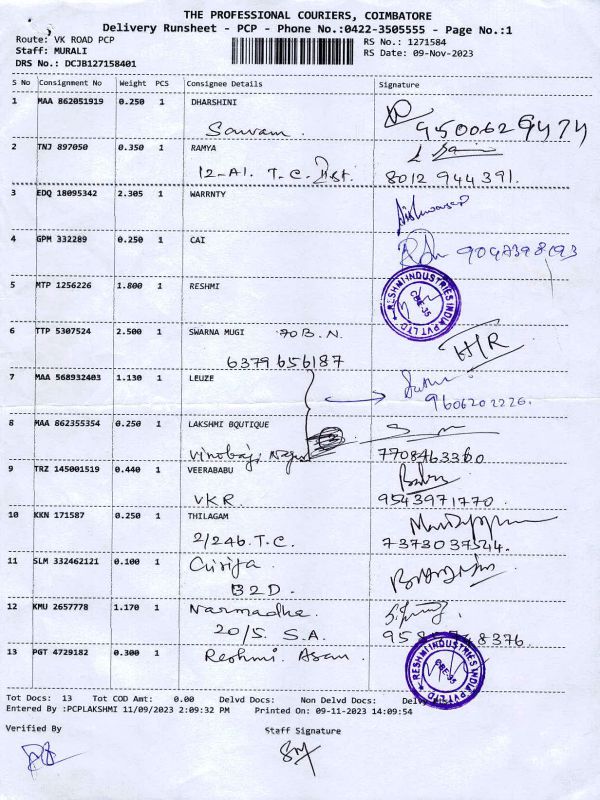 THE PROFESSIONAL COURIERS, COIMBATORE
Delivery Runsheet - PCP - Phone No.:0422-3505555 - Page No.:1
Route: VK ROAD PCP
RS No.: 1271584
Staff: MURALI
RS Date: 09-Nov-2023
DRS No.: DCJB127158401
S No Consignment No Weight PCS Consignee Details Signature
1 MAA 862051919 0.250 1 DHARSHINI
9500629474
2 TNJ 897050 0.350 1 RAMYA
12-A1. T.C. 8012944391.
3 EDQ 18095342 2.305 1 WARRNTY
4 GPM 332289 0.250 1 CAI
5 MTP 1256226 1.800 1 RESHMI
RESHMI INDUSTRIES INDIA PVT LTD CBE-35
6 TTP 5307524 2.500 1 SWARNA MUGI 70 B.N. H/R
6379656187
7 MAA 568932403 1.130 1 LEUZE
9606202226.
8 MAA 862355354 0.250 1 LAKSHMI BQUTIQUE
7708463360
9 TRZ 145001519 0.440 1 VEERABABU
VKR. 9543971770.
10 KKN 171587 0.250 1 THILAGAM
2/246.T.C. 7373037544.
11 SLM 332462121 0.100 1
B2D.
12 KMU 2657778 1.170 1 Narmadha.
20/5. S.A.
13 PGT 4729182 0.300 1 Reshmi. Asan
RESHMI INDUSTRIES INDIA PVT LTD CBE-35
Tot Docs: 13 Tot COD Amt: 0.00 Delvd Docs: Non Delvd Docs:
Entered By :PCPLAKSHMI 11/09/2023 2:09:32 PM Printed On: 09-11-2023 14:09:54
Verified By Staff Signature